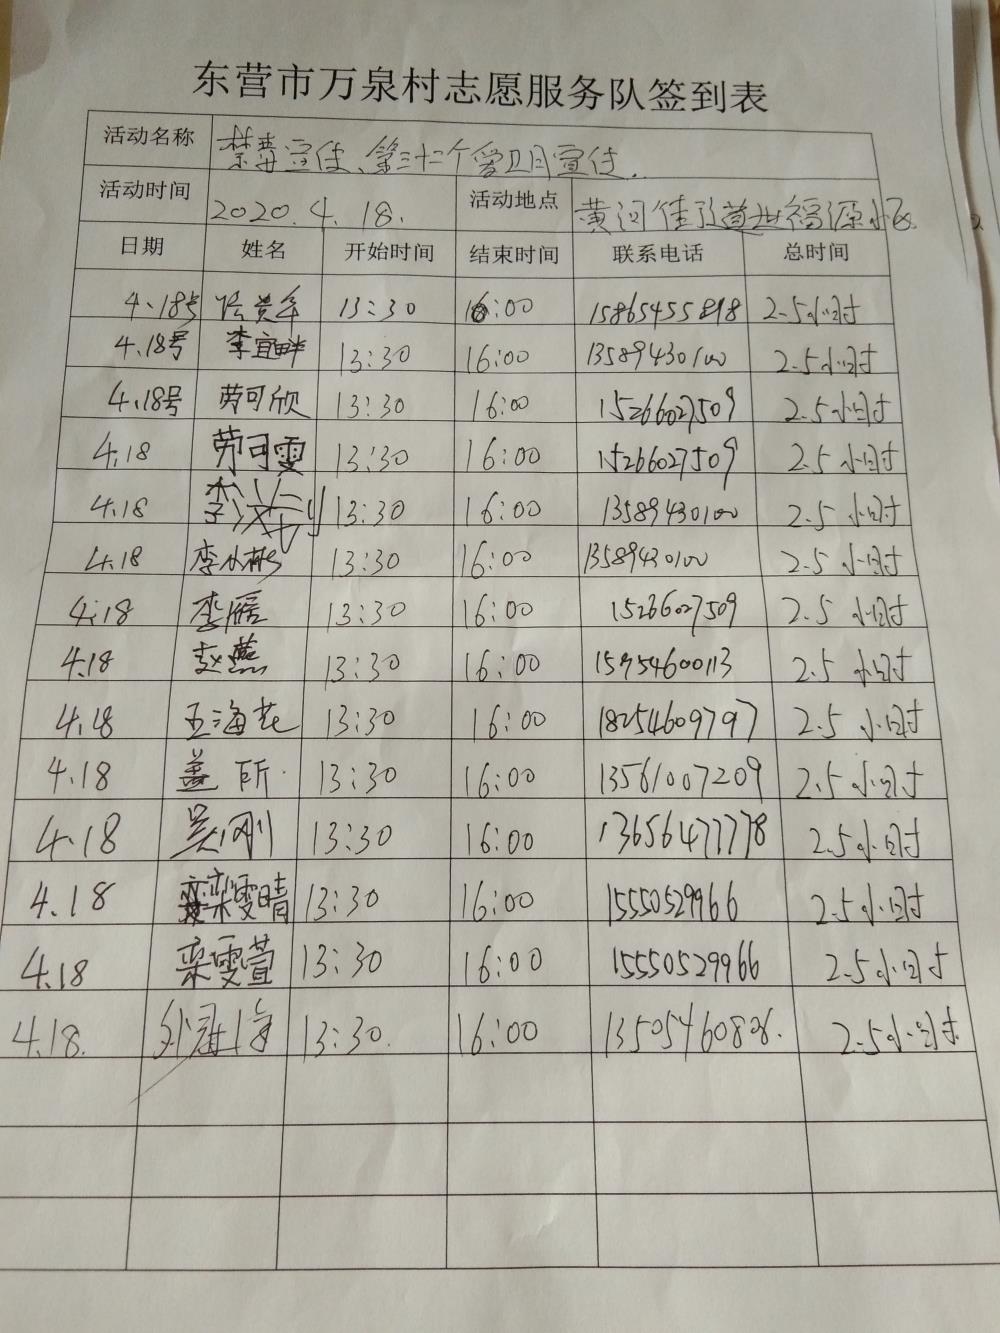 东营市万泉村志愿服务队签到表
活动名称 禁毒宣传、第三十二个爱卫月宣传.
活动时间 2020.4.18. 活动地点 黄河街道世福源小区
日期 姓名 开始时间 结束时间 联系电话 总时间
4.18号 13:30 16:00 15865455898 2.5小时
4.18号 李宜畔 13:30 16:00 13589430100 2.5小时
4.18号 劳可欣 13:30 16:00 15266027509 2.5小时
4.18 劳可雯 13:30 16:00 15266027509 2.5小时
4.18 李 13:30 16:00 13589430100 2.5小时
4.18 李小彬 13:30 16:00 13589430100 2.5小时
4.18 李雁 13:30 16:00 15266027509 2.5小时
4.18 赵燕 13:30 16:00 15954600113 2.5小时
4.18 王海花 13:30 16:00 18254609797 2.5小时
4.18 盖 13:30 16:00 13561007209 2.5小时
4.18 吴刚 13:30 16:00 13656477778 2.5小时
4.18 栾雯晴 13:30 16:00 15550529966 2.5小时
4.18 栾雯萱 13:30 16:00 15550529966 2.5小时
4.18. 13:30. 16:00 13505460808. 2.5小时